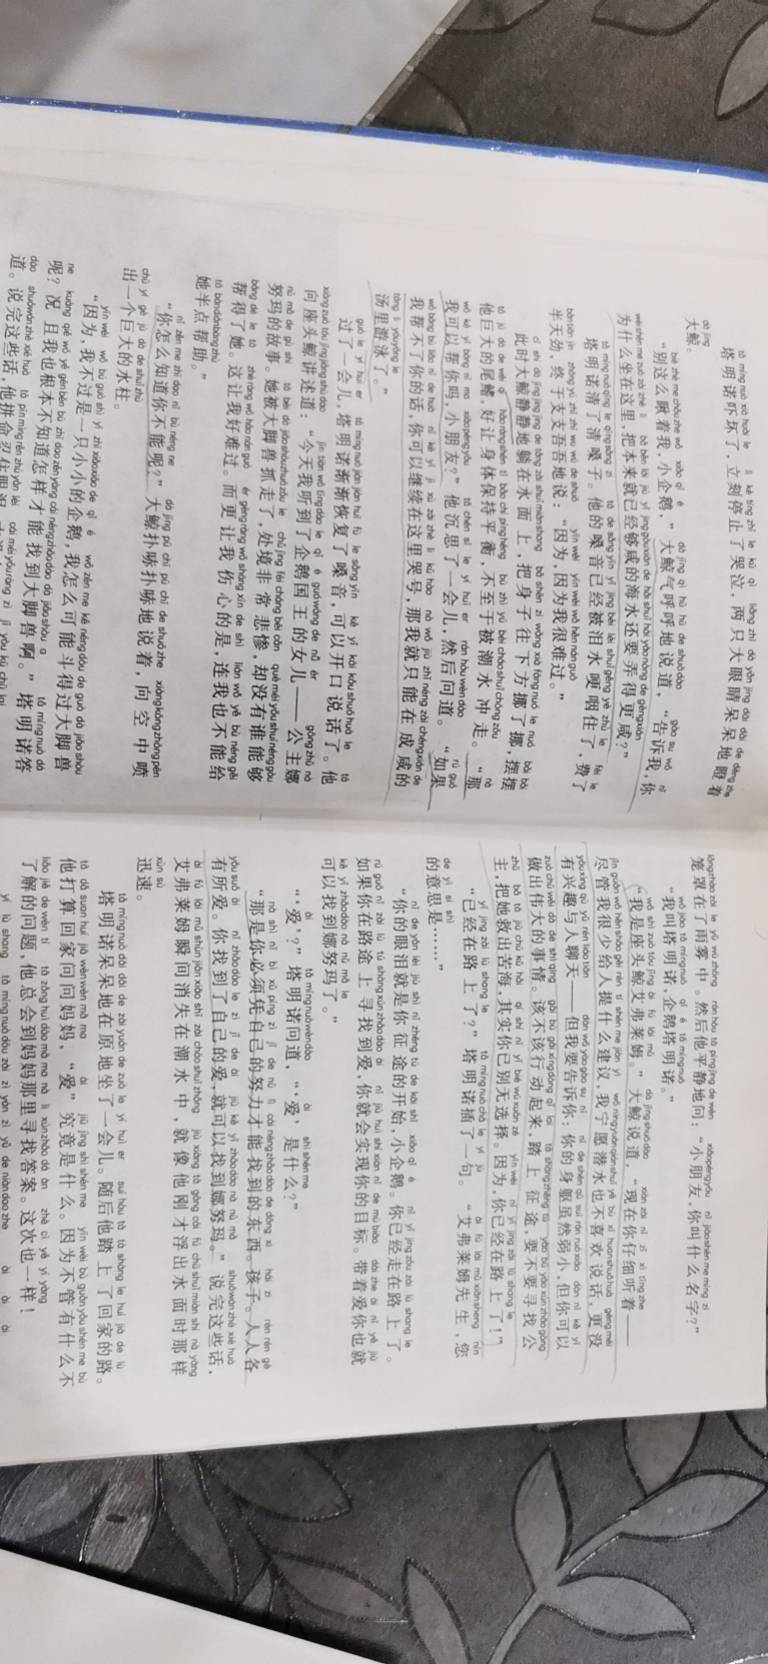 塔明诺吓坏了，立刻停止了哭泣，两只大眼睛呆呆地瞪着
大鲸。
“别这么瞅着我，小企鹅，”大鲸气呼呼地说道，“告诉我，你
为什么坐在这里，把本来就已经够咸的海水还要弄得更咸？”
塔明诺清了清嗓子。他的嗓音已经被泪水哽咽住了，费了
半天劲，终于支支吾吾地说：“因为，因为我很难过。”
此时大鲸静静地躺在水面上，把身子往下方挪了挪，摆摆
他巨大的尾鳍，好让身体保持平衡，不至于被潮水冲走。“那
我可以帮你吗，小朋友？”他沉思了一会儿，然后问道。“如果
我帮不了你的话，你可以继续在这里哭号，那我就只能在咸的
汤里游泳了。”
过了一会儿，塔明诺渐渐恢复了嗓音，可以开口说话了。他
向座头鲸讲述道：“今天我听到了企鹅国王的女儿——公主娜
努玛的故事。她被大脚兽抓走了，处境非常悲惨，却没有谁能够
帮得了她。这让我好难过。而更让我伤心的是，连我也不能给
她半点帮助。”
“你怎么知道你不能呢？”大鲸扑哧扑哧地说着，向空中喷
出一个巨大的水柱。
“因为，我不过是一只小小的企鹅，我怎么可能斗得过大脚兽
呢？况且我也根本不知道怎样才能找到大脚兽啊。”塔明诺答
道。说完这些话，他拼命忍住眼泪
笼罩在了雨雾中。然后他平静地问：“小朋友，你叫什么名字？”
“我叫塔明诺，企鹅塔明诺。”
“我是座头鲸艾弗莱姆。”大鲸说道，“现在你仔细听着——
尽管我很少给人提什么建议，我宁愿潜水也不喜欢说话，更没
有兴趣与人聊天——但我要告诉你：你的身躯虽然弱小，但你可以
做出伟大的事情。该不该行动起来，踏上征途，要不要寻找公
主，把她救出苦海，其实你已别无选择。因为，你已经在路上了！”
“已经在路上了？”塔明诺插了一句。“艾弗莱姆先生，您
的意思是……”
“你的眼泪就是你征途的开始，小企鹅。你已经走在路上了。
如果你在路途上寻找到爱，你就会实现你的目标。带着爱你也就
可以找到娜努玛了。”
“‘爱’？”塔明诺问道，“‘爱’是什么？”
“那是你必须凭自己的努力才能找到的东西。孩子。人人各
有所爱。你找到了自己的爱，就可以找到娜努玛。”说完这些话，
艾弗莱姆瞬间消失在潮水中，就像他刚才浮出水面时那样
迅速。
塔明诺呆呆地在原地坐了一会儿。随后他踏上了回家的路。
他打算回家问问妈妈，“爱”究竟是什么。因为不管有什么不
了解的问题，他总会到妈妈那里寻找答案。这次也一样！